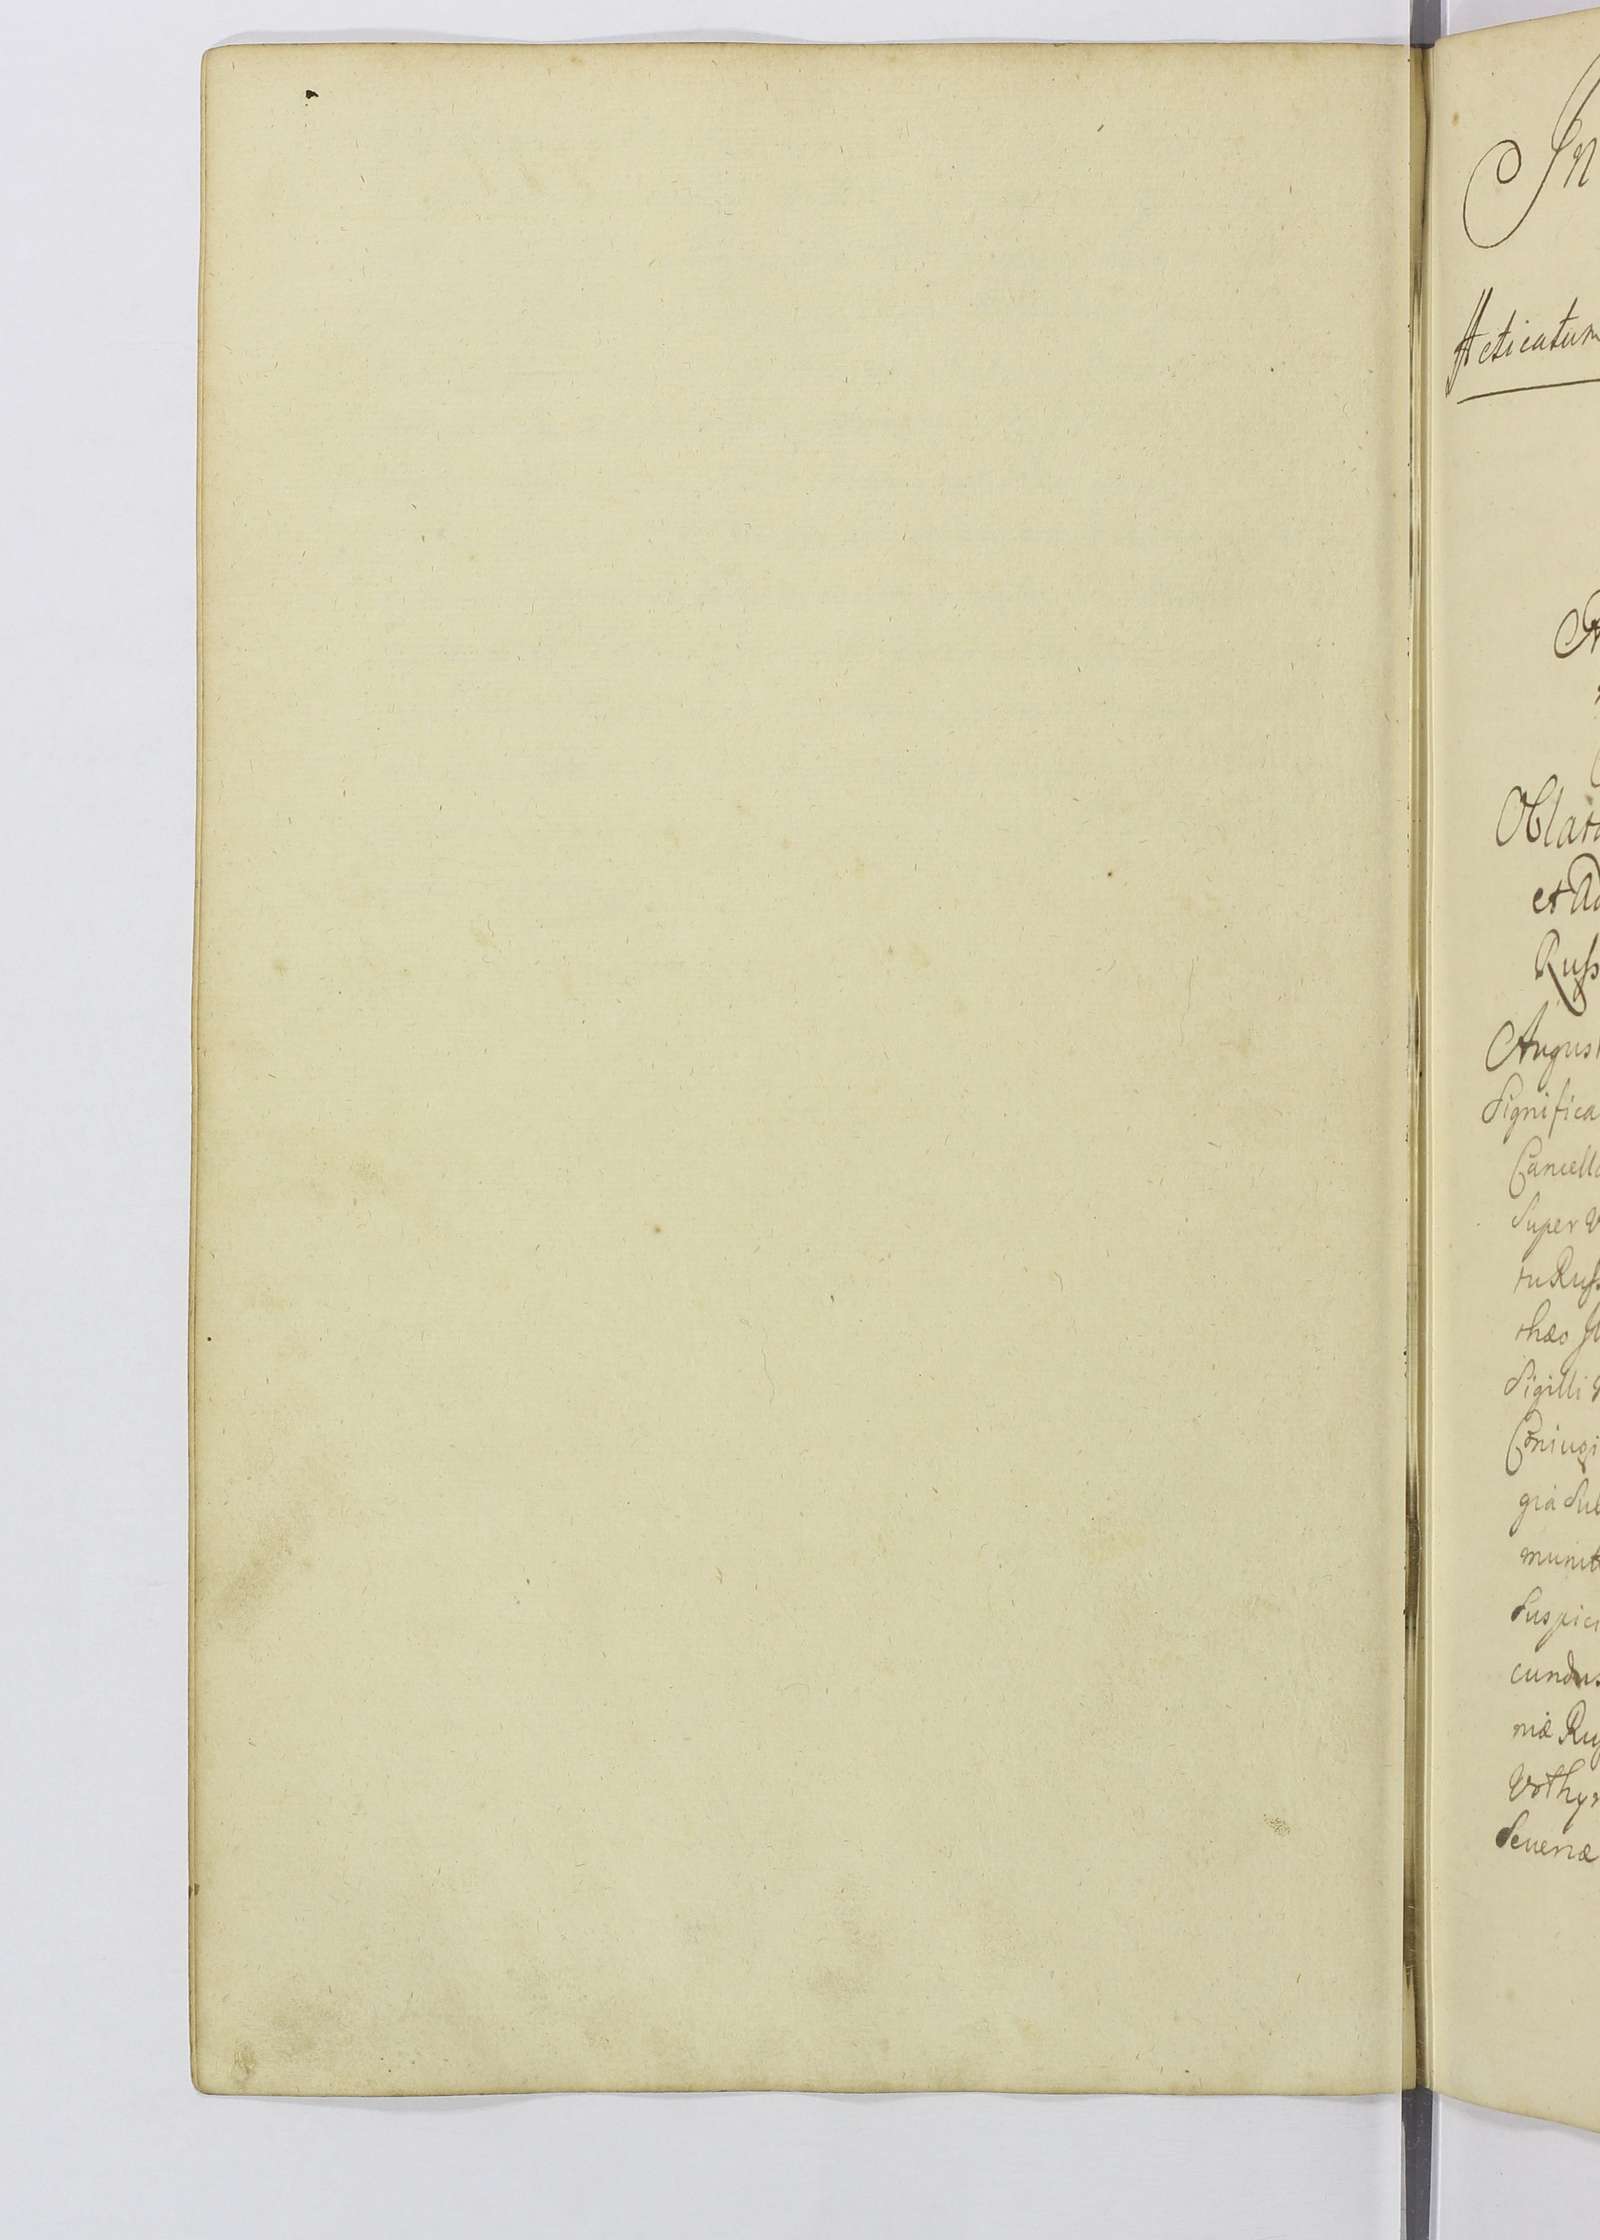 In
Acticatum
Oblat
et A
Russ
August
Significa
Cancella
super V
tu Russ
thæo
Sigilli
Coniugi
gia Sub
munit
Suspici
cundus
niæ Rus
Vothyn
Seueriæ